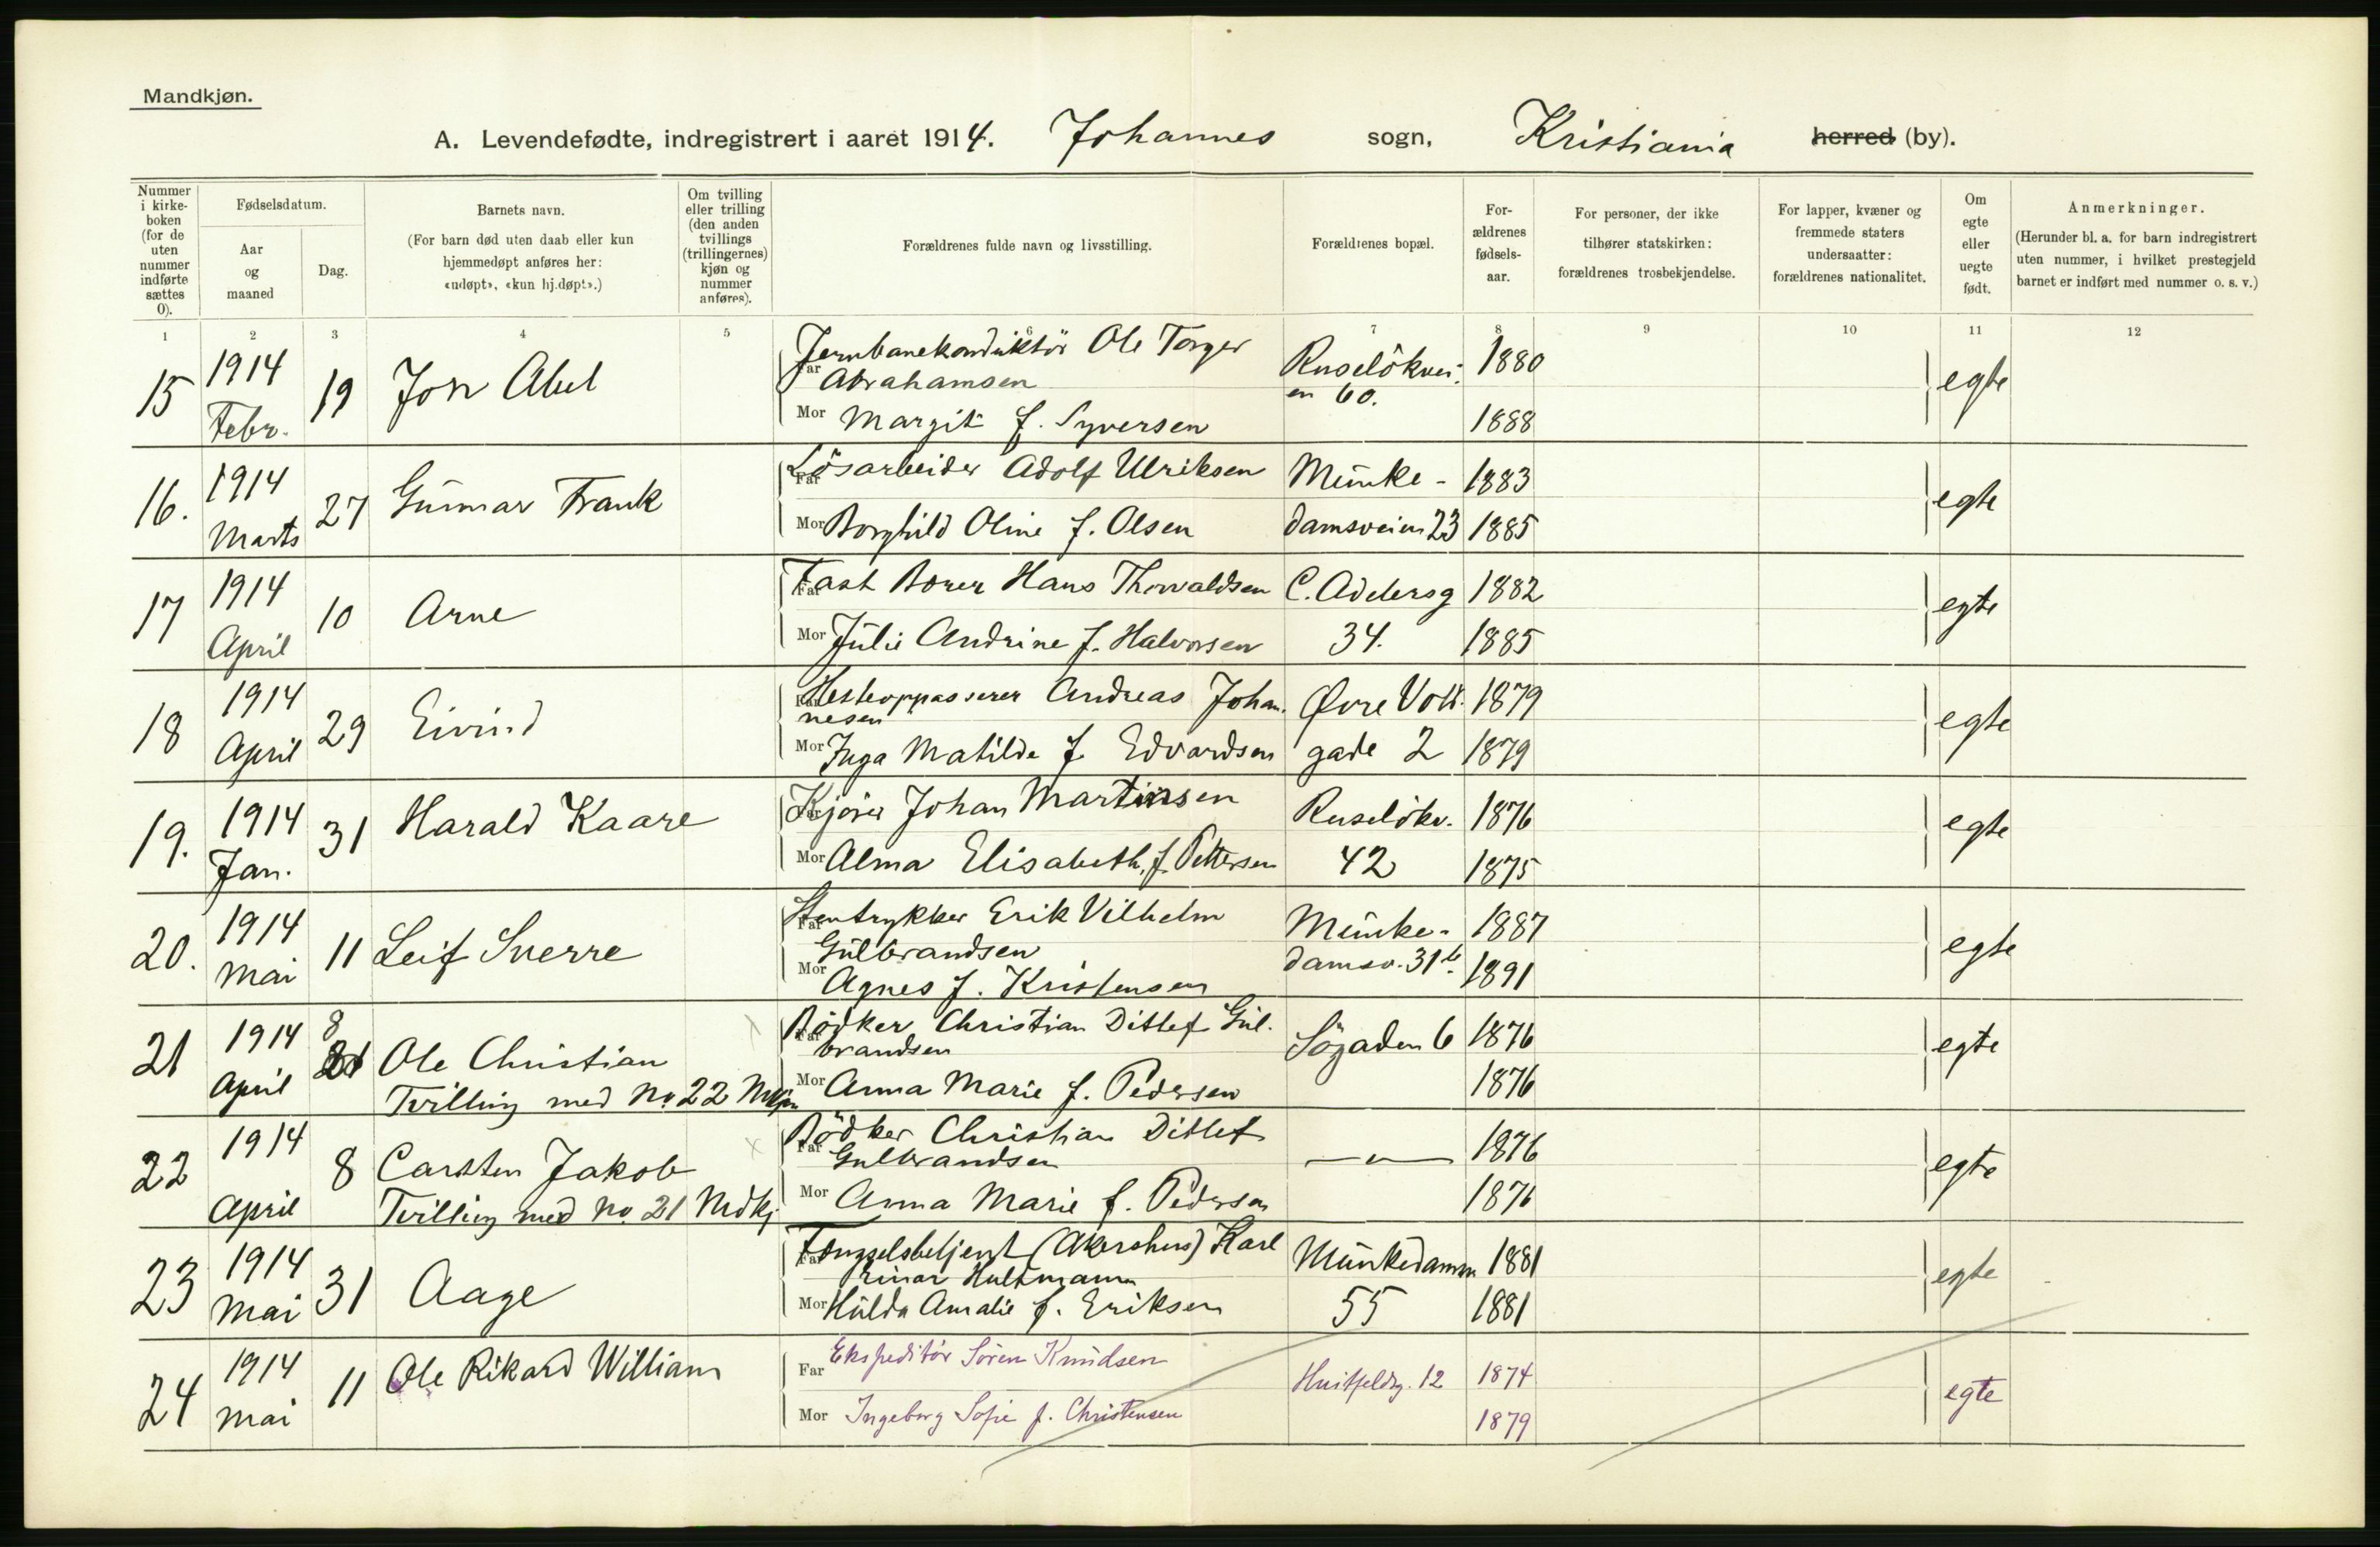 Mandkjøn.
A. Levendefødte, indregistrert i aaret 1914. Johannes sogn, Kristiania herred (by).
Nummer i kirke-boken (for de uten nummer indførte sættes 0).
Fødselsdatum.
Aar og maaned
Dag.
Barnets navn.
(For barn død uten daab eller kun hjemmedøpt anføres her: «udøpt», «kun hj.døpt».)
Om tvilling eller trilling (den anden tvillings (trillingernes) kjøn og nummer anføres).
Forældrenes fulde navn og livsstilling.
Forældrenes bopæl.
For-ældrenes fødsels-aar.
For personer, der ikke tilhører statskirken: forældrenes trosbekjendelse.
For lapper, kvæner og fremmede staters undersaatter: forældrenes nationalitet.
Om egte eller uegte født.
Anmerkninger.
(Herunder bl. a. for barn indregistrert uten nummer, i hvilket prestegjeld barnet er indført med nummer o. s. v.)
1 2 3 4 5 6 7 8 9 10 11 12
15 1914 Febr. 19 Jon Abel
Far Jernbanekonduktör Ole Torger Abrahamsen Ruselökvei-en 60. 1880 egte
Mor Margit f. Syversen 1888
16. 1914 Marts 27 Gunnar Frank
Far Lösarbeider Adolf Ulriksen Munke- 1883 egte
Mor Borghild Oline f. Olsen damsveien 23 1885
17 1914 April 10 Arne
Far Fast Borer Hans Thorvaldsen C. Adelersg 1882 egte
Mor Julie Andrine f. Halvorsen 34. 1885
18 1914 April 29 Eivind
Far Hesteoppasserer Andreas Johannesen Øvre Voll- 1879 egte
Mor Inga Matilde f. Edvardsen gade 2 1879
19. 1914 Jan. 31 Harald Kaare
Far Kjörer Johan Martinsen Ruselökv. 1876 egte
Mor Alma Elisabeth f. Pettersen 42 1875
20. 1914 Mai 11 Leif Sverre
Far Stentrykker Erik Vilhelm Gulbrandsen Munke- 1887 egte
Mor Agnes f. Kristensen damsv. 31b. 1891
21 1914 April 8 Ole Christian
Tvilling med No. 22 Mkjn
Far Bödker Christian Ditlef Gulbrandsen Sögaden 6 1876 egte
Mor Anna Marie f. Pedersen 1876
22 1914 April 8 Carsten Jakob
Tvilling med No. 21 Mdkj
Far Bödker Christian Ditlef Gulbrandsen —"— 1876 egte
Mor Anna Marie f. Pedersen 1876
23 1914 Mai 31 Aage
Far Fængselsbetjent (Akershus) Karl Einar Hultmann Munkedamsv 1881 egte
Mor Hulda Amalie f. Eriksen 55 1881
24 1914 Mai 11 Ole Rikard William
Far Ekspeditör Sören Knudsen Huitfeldsg. 12 1874 egte
Mor Ingeborg Sofie f. Christensen 1879